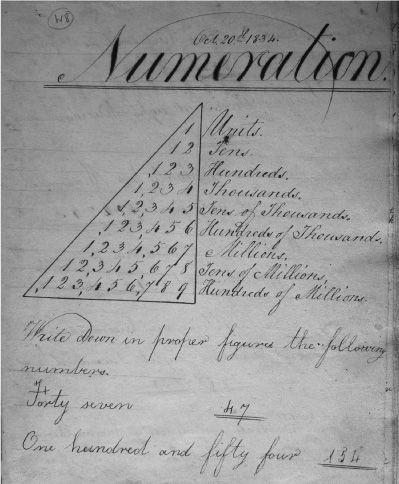 W8
Oct. 20th 1834.
Numeration.
1 Units.
1 2 Tens.
1 2 3 Hundreds.
1,2 3 4 Thousands.
1 2,3 4 5 Tens of Thousands.
1 2 3,4 5 6 Hundreds of Thousands.
1,2 3 4,5 6 7 Millions.
1 2,3 4 5,6 7 8 Tens of Millions,
1 2 3,4 5 6,7 8 9 Hundreds of Millions.
Write down in proper figures the following
numbers.
Forty seven 47
One hundred and fifty four 154